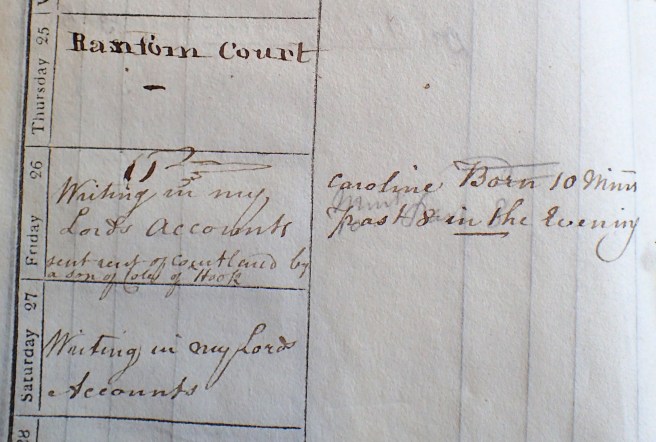 Thursday 25
Ranton Court
Friday 26
Writing in my
Lords Accounts
sent rent of by
a son of of Hook
Caroline Born 10 Minns
past 8 in the Evening
Saturday 27
Writing in my Lords
Accounts
28